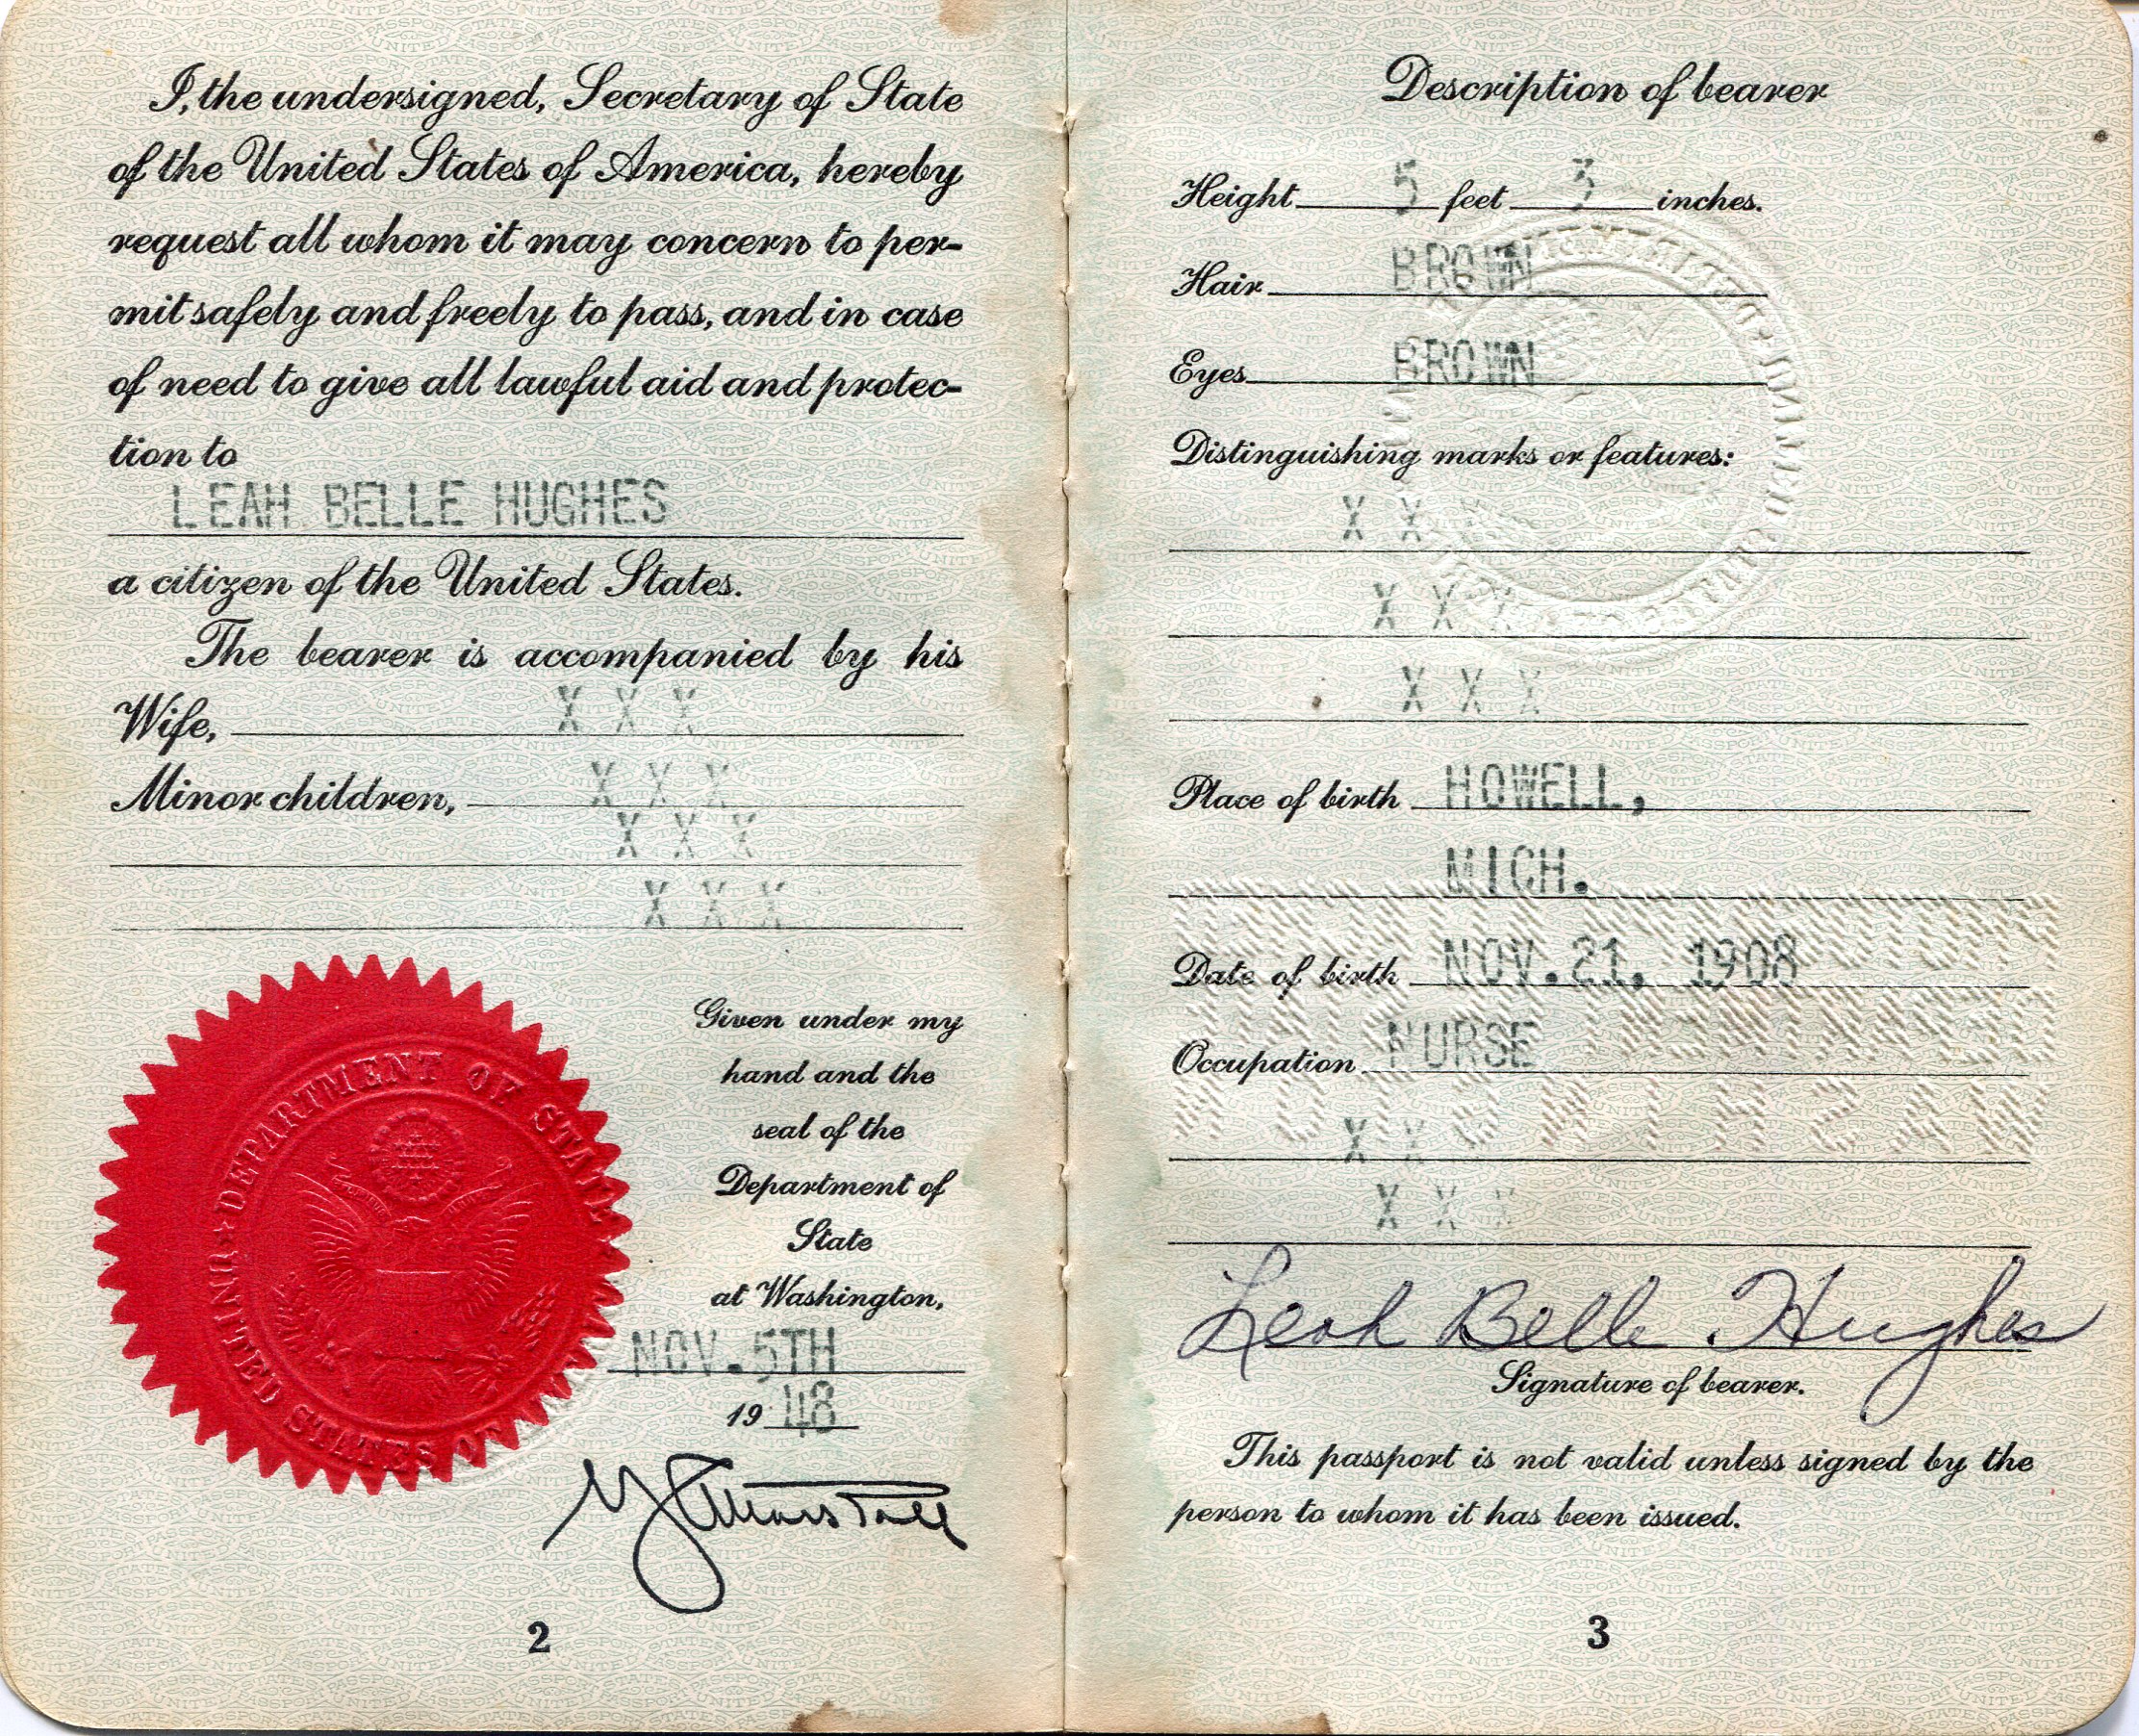 I, the undersigned, Secretary of State
of the United States of America, hereby
request all whom it may concern to per-
mit safely and freely to pass, and in case
of need to give all lawful aid and protec-
tion to
LEAH BELLE HUGHES
a citizen of the United States.
The bearer is accompanied by his
Wife, X X X
Minor children, X X X
X X X
X X X
DEPARTMENT OF STATE
UNITED STATES OF AMERICA
Given under my
hand and the
seal of the
Department of
State
at Washington,
NOV. 5TH
19 48
G C Marshall
2
Description of bearer
Height 5 feet 3 inches.
Hair BROWN
Eyes BROWN
Distinguishing marks or features:
X X
X X X
X X X
Place of birth HOWELL,
MICH.
Date of birth NOV. 21, 1908
Occupation NURSE
X X
X X X
Leah Belle Hughes
Signature of bearer.
This passport is not valid unless signed by the
person to whom it has been issued.
3